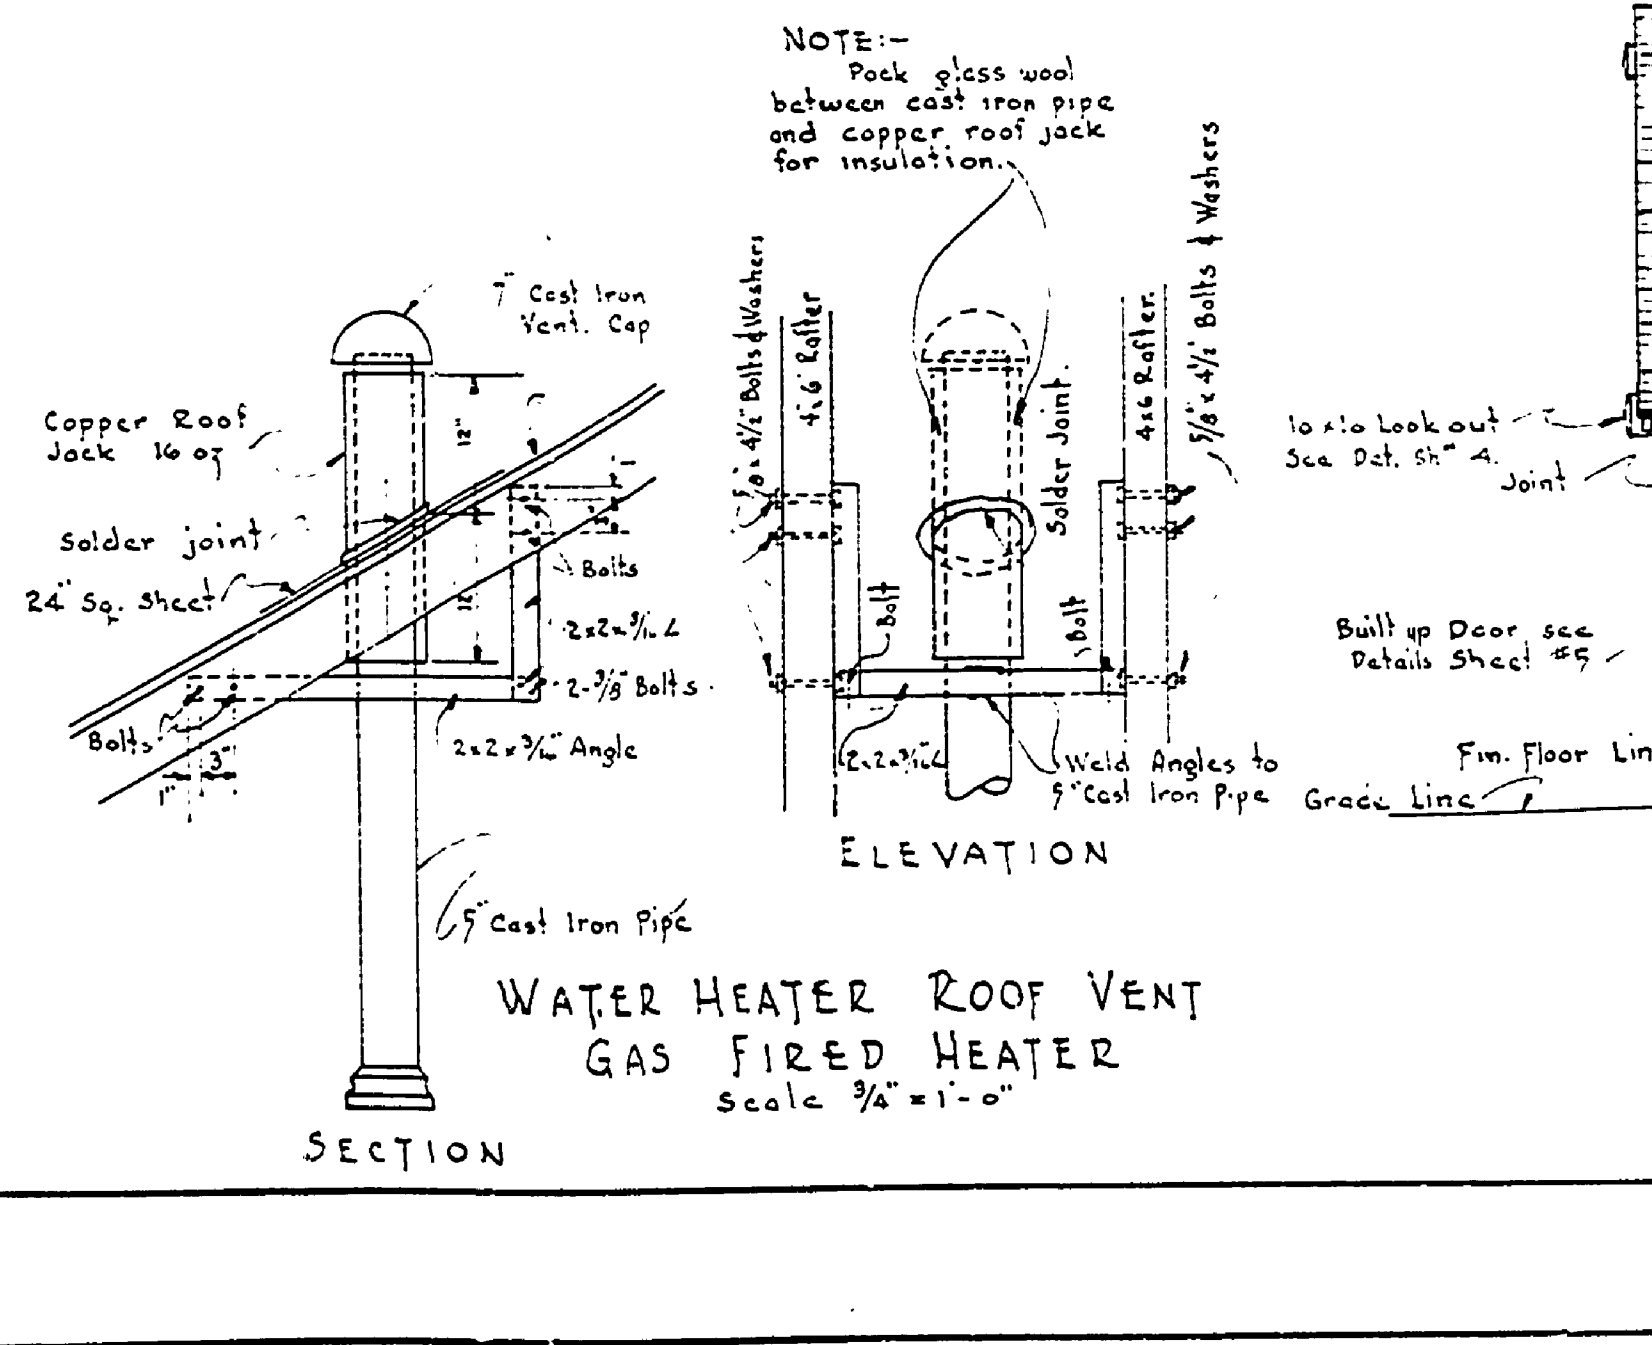 NOTE:-
Pack glass wool
between cast iron pipe
and copper roof jack
for insulation.
7" Cast Iron
Vent. Cap
Copper Roof
Jack 16 oz
12"
Solder joint
24" Sq. Sheet
12"
Bolts
2x2x3/16 L
2-3/8" Bolts
2x2x3/16" Angle
Bolts
3"
1"
5" Cast Iron Pipe
SECTION
5/8" x 4 1/2" Bolts & Washers
4x6 Rafter
Solder Joint.
4x6 Rafter.
5/8" x 4 1/2" Bolts & Washers
Bolt
Bolt
2x2x3/16" L
Weld Angles to
5" Cast Iron Pipe
ELEVATION
WATER HEATER ROOF VENT
GAS FIRED HEATER
Scale 3/4" = 1'-0"
10x10 Look out
See Det. Sh" 4.
Joint
Built up Door, see
Details Sheet #5
Fin. Floor Lin
Grade Line